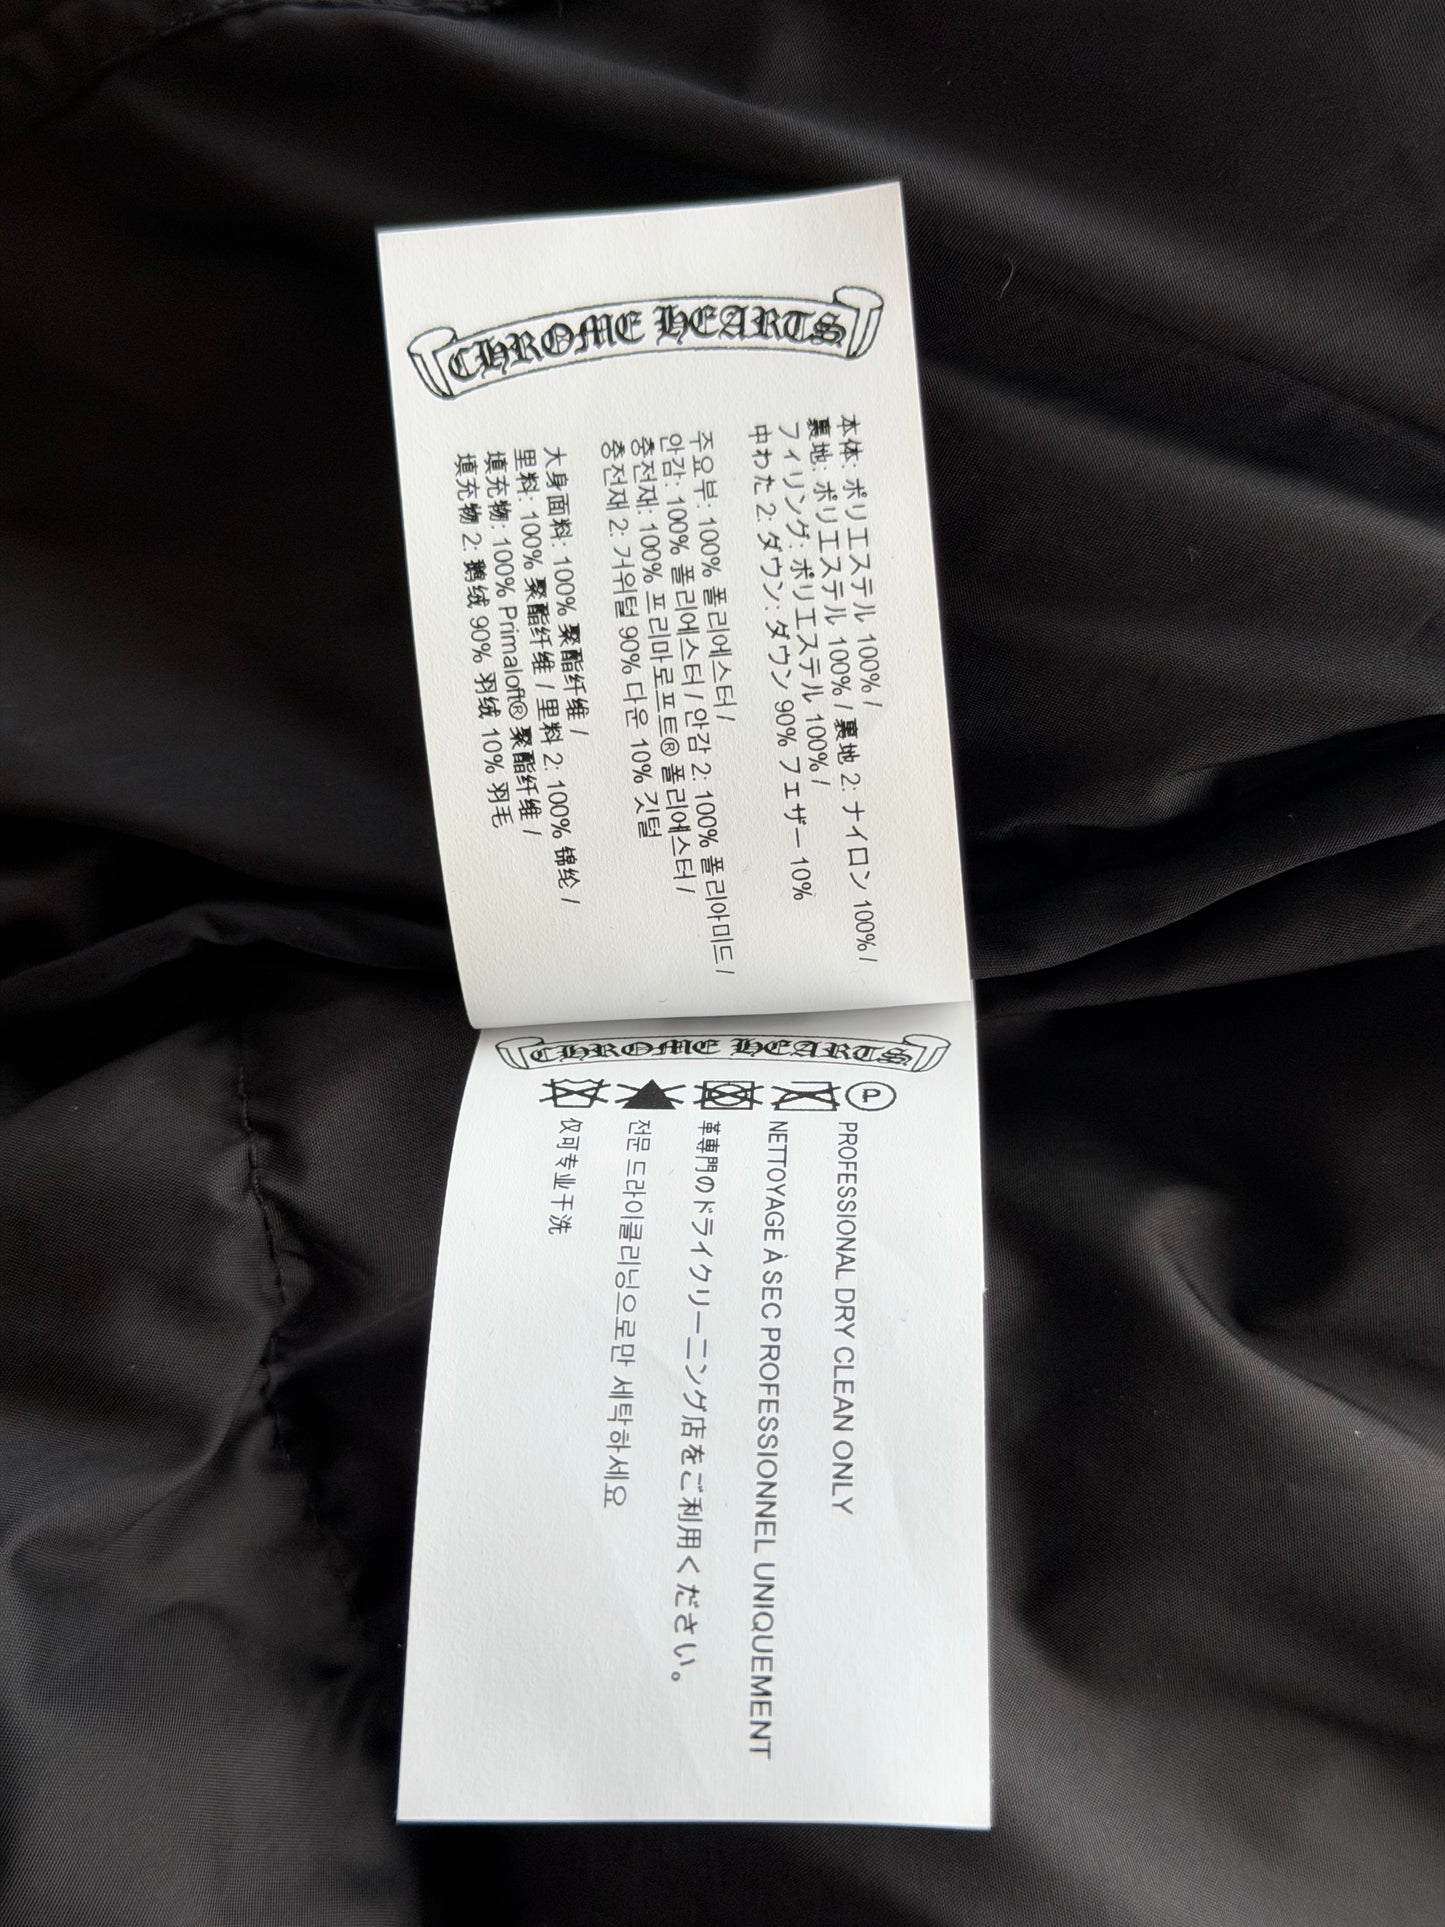 CHROME HEARTS
本体: ポリエステル 100% /
裏地: ポリエステル 100% / 裏地 2: ナイロン 100% /
フィリング: ポリエステル 100% /
中わた 2: ダウン: ダウン 90% フェザー 10%
주요부: 100% 폴리에스터 /
안감: 100% 폴리에스터 / 안감 2: 100% 폴리아미드 /
충전재: 100% 프리마로프트® 폴리에스터 /
충전재 2: 거위털 90% 다운 10% 깃털
大身面料: 100% 聚酯纤维 /
里料: 100% 聚酯纤维 / 里料 2: 100% 锦纶 /
填充物: 100% Primaloft® 聚酯纤维 /
填充物 2: 鹅绒 90% 羽绒 10% 羽毛
CHROME HEARTS
P PROFESSIONAL DRY CLEAN ONLY
NETTOYAGE À SEC PROFESSIONNEL UNIQUEMENT
革専門のドライクリーニング店をご利用ください。
전문 드라이클리닝으로만 세탁하세요
仅可专业干洗